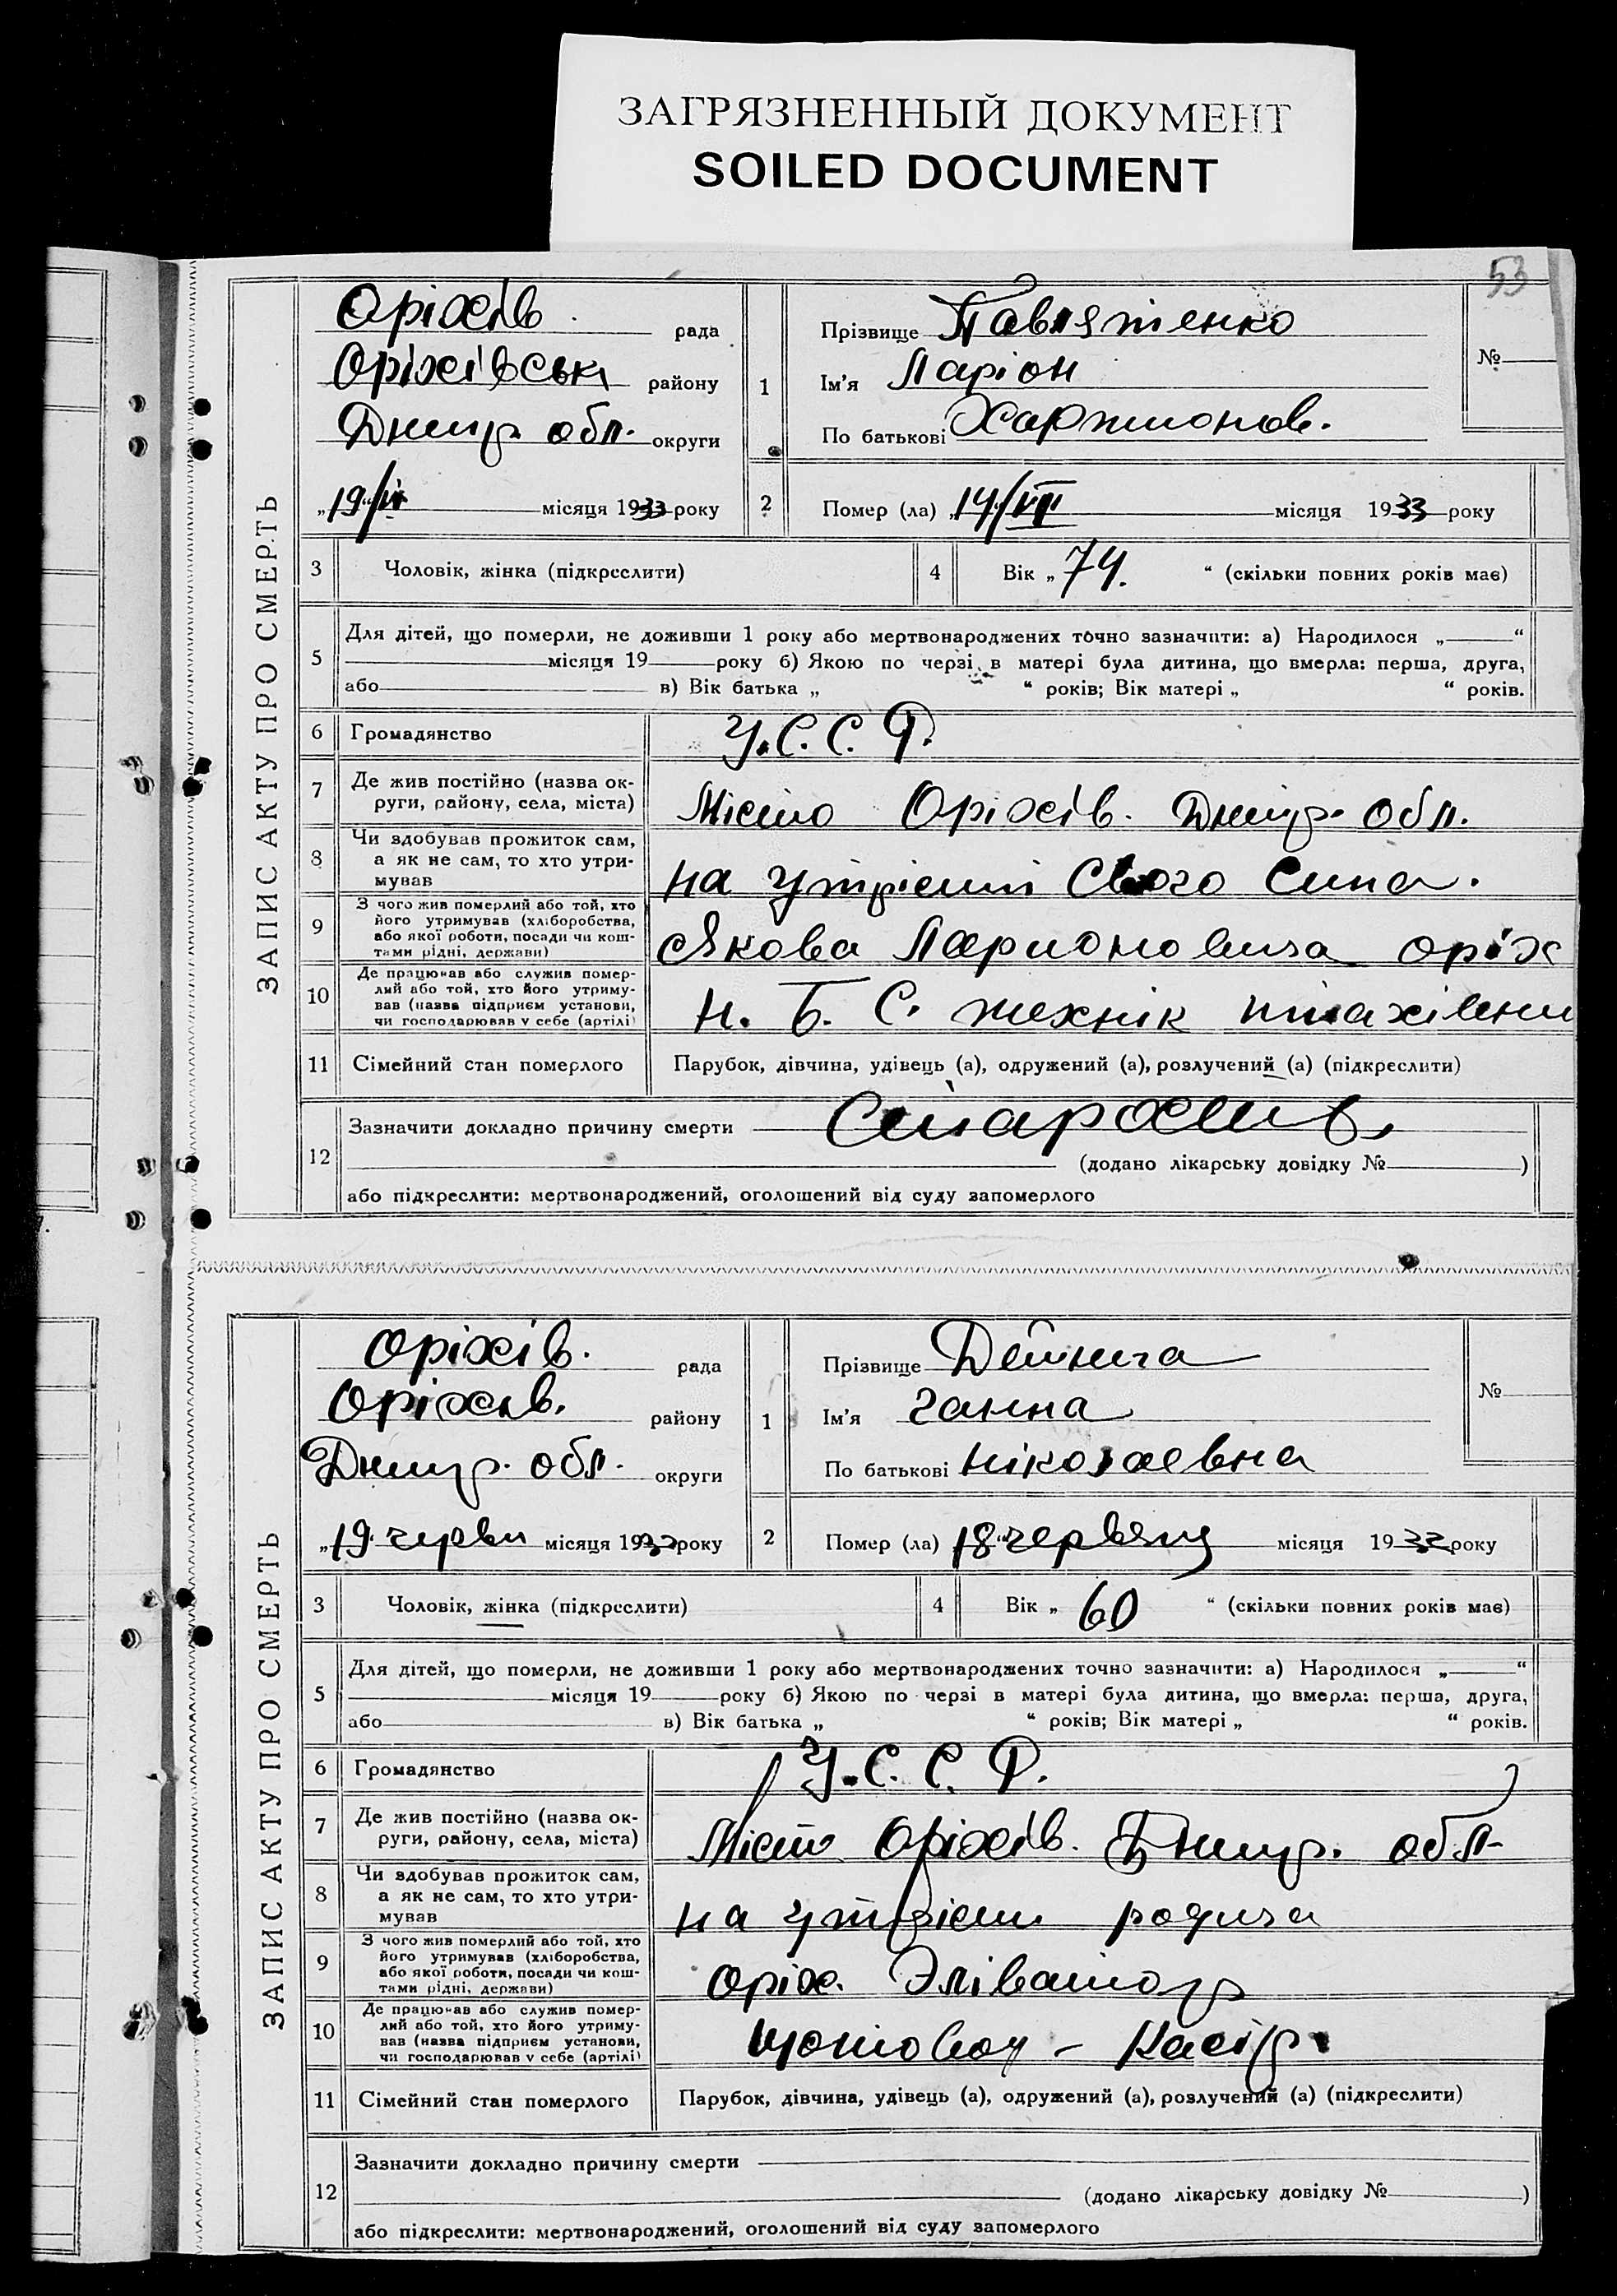 ЗАГРЯЗНЕННЫЙ ДОКУМЕНТ
SOILED DOCUMENT
53
ЗАПИС АКТУ ПРО СМЕРТЬ
Оріхів рада
Оріхівськ району
Днипр. обл. округи
„19“/ місяця 1933 року
1
Прізвище Павлятенко
Ім'я Ларіон
По батькові Харитонов.
№
2 Помер (ла) „14“/ місяця 1933 року
3 Чоловік, жінка (підкреслити)
4 Вік „74.“ (скільки повних років має)
5 Для дітей, що померли, не доживши 1 року або мертвонароджених точно зазначити: а) Народилося „ “
місяця 19 року б) Якою по черзі в матері була дитина, що вмерла: перша, друга,
або в) Вік батька „ “ років; Вік матері „ “ років.
6 Громадянство У.С.С.Р.
7 Де жив постійно (назва ок-
руги, району, села, міста)
Місто Оріхів. Днипр. обл.
8 Чи здобував прожиток сам,
а як не сам, то хто утри-
мував
на утрієнні Свого Сина.
9 З чого жив померлий або той, хто
його утримував (хліборобства,
або якої роботи, посади чи кош-
тами рідні, держави)
Якова Ларионовича оріх
10 Де працював або служив помер-
лий або той, хто його утриму-
вав (назва підприєм установи,
чи господарював у себе (артілі)
Н. Б. С. технік
11 Сімейний стан померлого Парубок, дівчина, удівець (а), одружений (а), розлучений (а) (підкреслити)
12 Зазначити докладно причину смерти
(додано лікарську довідку № )
або підкреслити: мертвонароджений, оголошений від суду запомерлого
ЗАПИС АКТУ ПРО СМЕРТЬ
Оріхів. рада
Оріхів. району
Днипр. обл. округи
„19“ червн місяця 1933 року
1
Прізвище
Ім'я Ганна
По батькові Ніколаевна
№
2 Помер (ла) „18“ червня місяця 1933 року
3 Чоловік, жінка (підкреслити)
4 Вік „60“ (скільки повних років має)
5 Для дітей, що померли, не доживши 1 року або мертвонароджених точно зазначити: а) Народилося „ “
місяця 19 року б) Якою по черзі в матері була дитина, що вмерла: перша, друга,
або в) Вік батька „ “ років; Вік матері „ “ років.
6 Громадянство У.С.С.Р.
7 Де жив постійно (назва ок-
руги, району, села, міста)
Місто Оріхів. Днипр. обл.
8 Чи здобував прожиток сам,
а як не сам, то хто утри-
мував
на утрієнні родича
9 З чого жив померлий або той, хто
його утримував (хліборобства,
або якої роботи, посади чи кош-
тами рідні, держави)
оріх. Эліватор
10 Де працював або служив помер-
лий або той, хто його утриму-
вав (назва підприєм установи,
чи господарював у себе (артілі)
щотовод - Касір
11 Сімейний стан померлого Парубок, дівчина, удівець (а), одружений (а), розлучений (а) (підкреслити)
12 Зазначити докладно причину смерти
(додано лікарську довідку № )
або підкреслити: мертвонароджений, оголошений від суду запомерлого